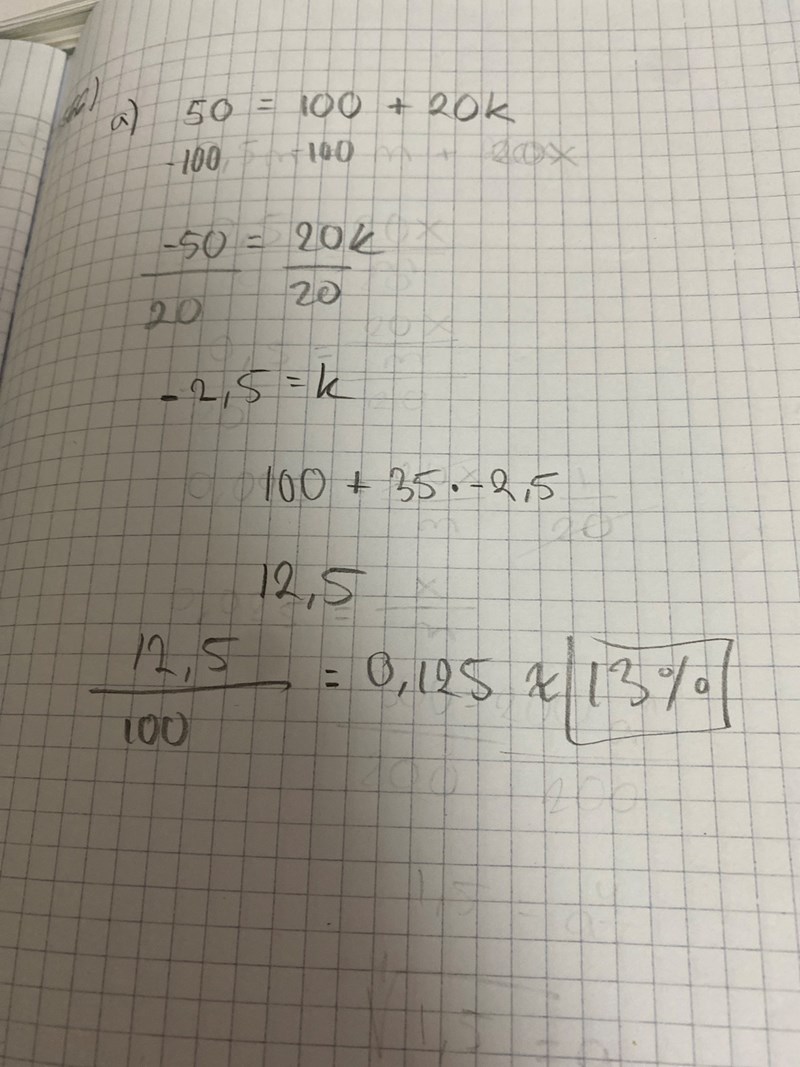 a) 50 = 100 + 20k
-100 -100
-50 = 20k
20 20
-2,5 = k
100 + 35 · -2,5
12,5
12,5
100
= 0,125 ≈ 13%